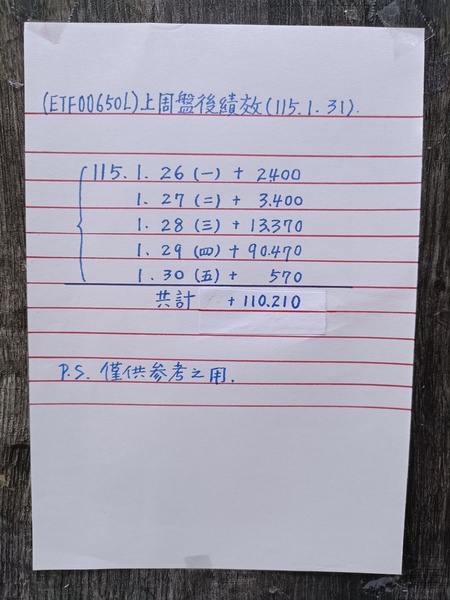 (ETF00650L)上周盤後績效(115.1.31).
115.1.26(一)+ 2.400
1.27(二)+ 3.400
1.28(三)+ 13.370
1.29(四)+90.470
1.30(五)+ 570
共計 +110.210
P.S. 僅供參考之用.